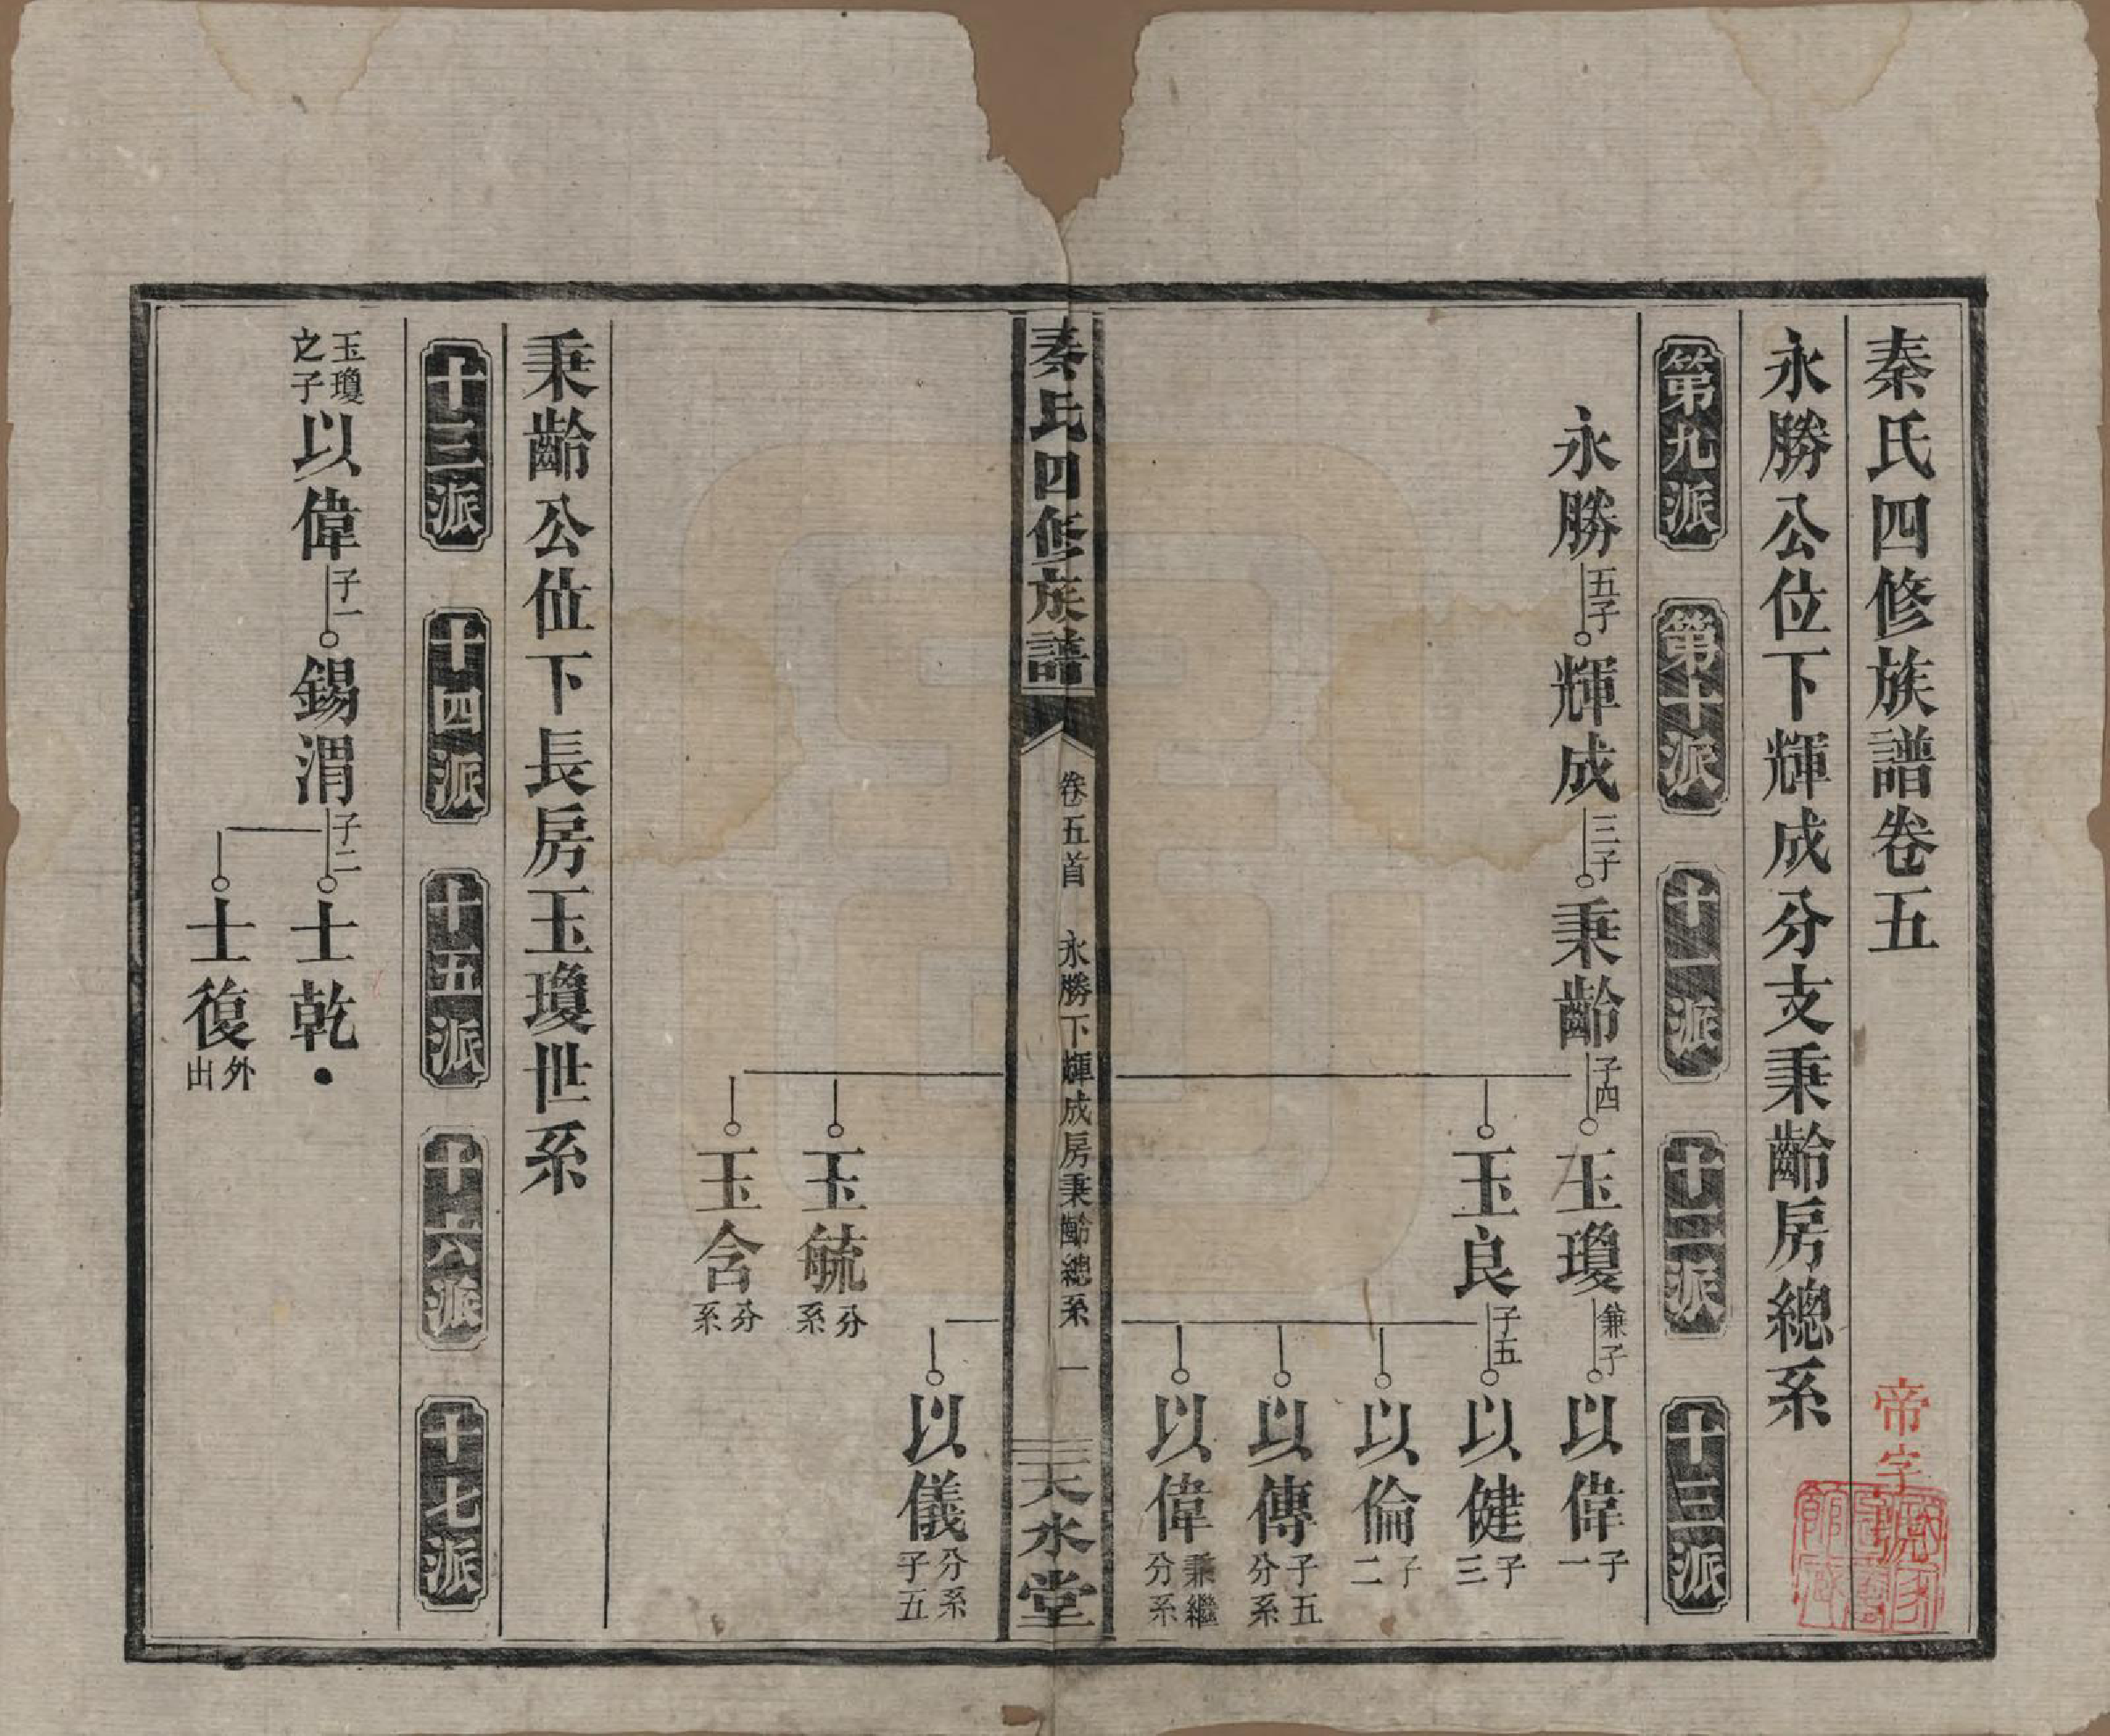 秦氏四修族譜卷五
帝字號
永勝公位下輝成分支秉齡房總系
第九派 第十派 十一派 十二派 十三派
永勝 五子 輝成 三子 秉齡 子四 玉瓊 兼子 以偉 子一
玉良 子五 以健 子三
以倫 子二
以傳 子五分系
以偉 兼繼分系
秦氏四修族譜 卷五首 永勝下輝成房秉齡總系 一 天水堂
以儀 分系子五
玉毓 分系
玉含 分系
秉齡公位下長房玉瓊世系
十三派 十四派 十五派 十六派 十七派
玉瓊之子 以偉 子一 錫渭 子二 士乾
士復 外出